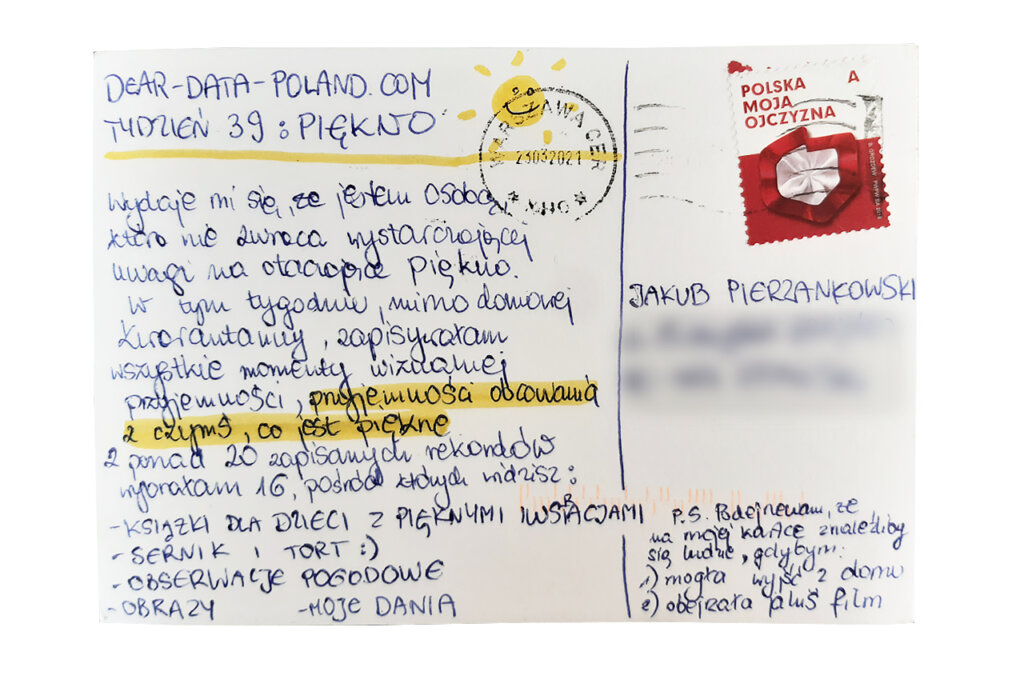 DEAR-DATA-POLAND.COM
TYDZIEŃ 39: PIĘKNO
Wydaje mi się, że jestem osobą,
która nie zwraca wystarczającej
uwagi na otaczające piękno.
W tym tygodniu, mimo domowej
kwarantanny, zapisywałam
wszystkie momenty wizualnej
przyjemności, przyjemności obcowania
z czymś, co jest piękne
Z ponad 20 zapisanych rekordów
wybrałam 16, pośród których widzisz:
- KSIĄŻKI DLA DZIECI Z PIĘKNYMI
- SERNIK I TORT :)
- OBSERWACJE POGODOWE
- OBRAZY - MOJE DANIA
WARSZAWA CER
23032021
POLSKA A
MOJA
OJCZYZNA
JAKUB PIERZANKOWSKI
P.S. Podejrzewam, że
na mojej kartce znaleźliby
się ludzie, gdybym:
1) mogła wyjść z domu
2) obejrzała jakiś film